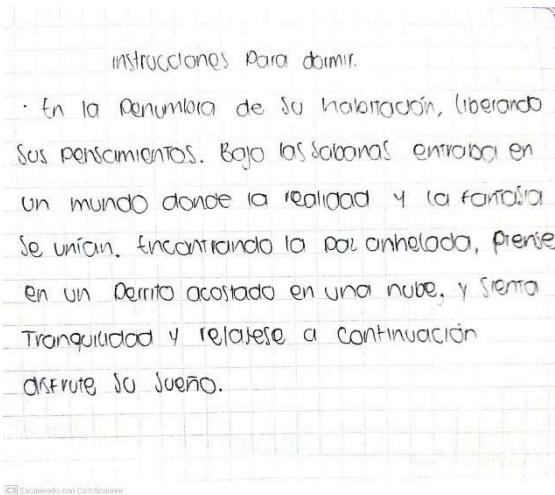 instrucciones para dormir.
· En la penumbra de su habitación, liberando
sus pensamientos. Bajo las sabanas entraba en
un mundo donde la realidad y la fantasía
se unían. Encontrando la paz anhelada, piense
en un perrito acostado en una nube, y sienta
Tranquilidad y relajese a continuación
disfrute su sueño.
CS Escaneado con CamScanner